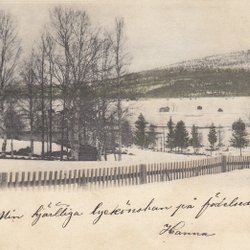 Min hjärtliga lyckönskan på födelsed
Hanna